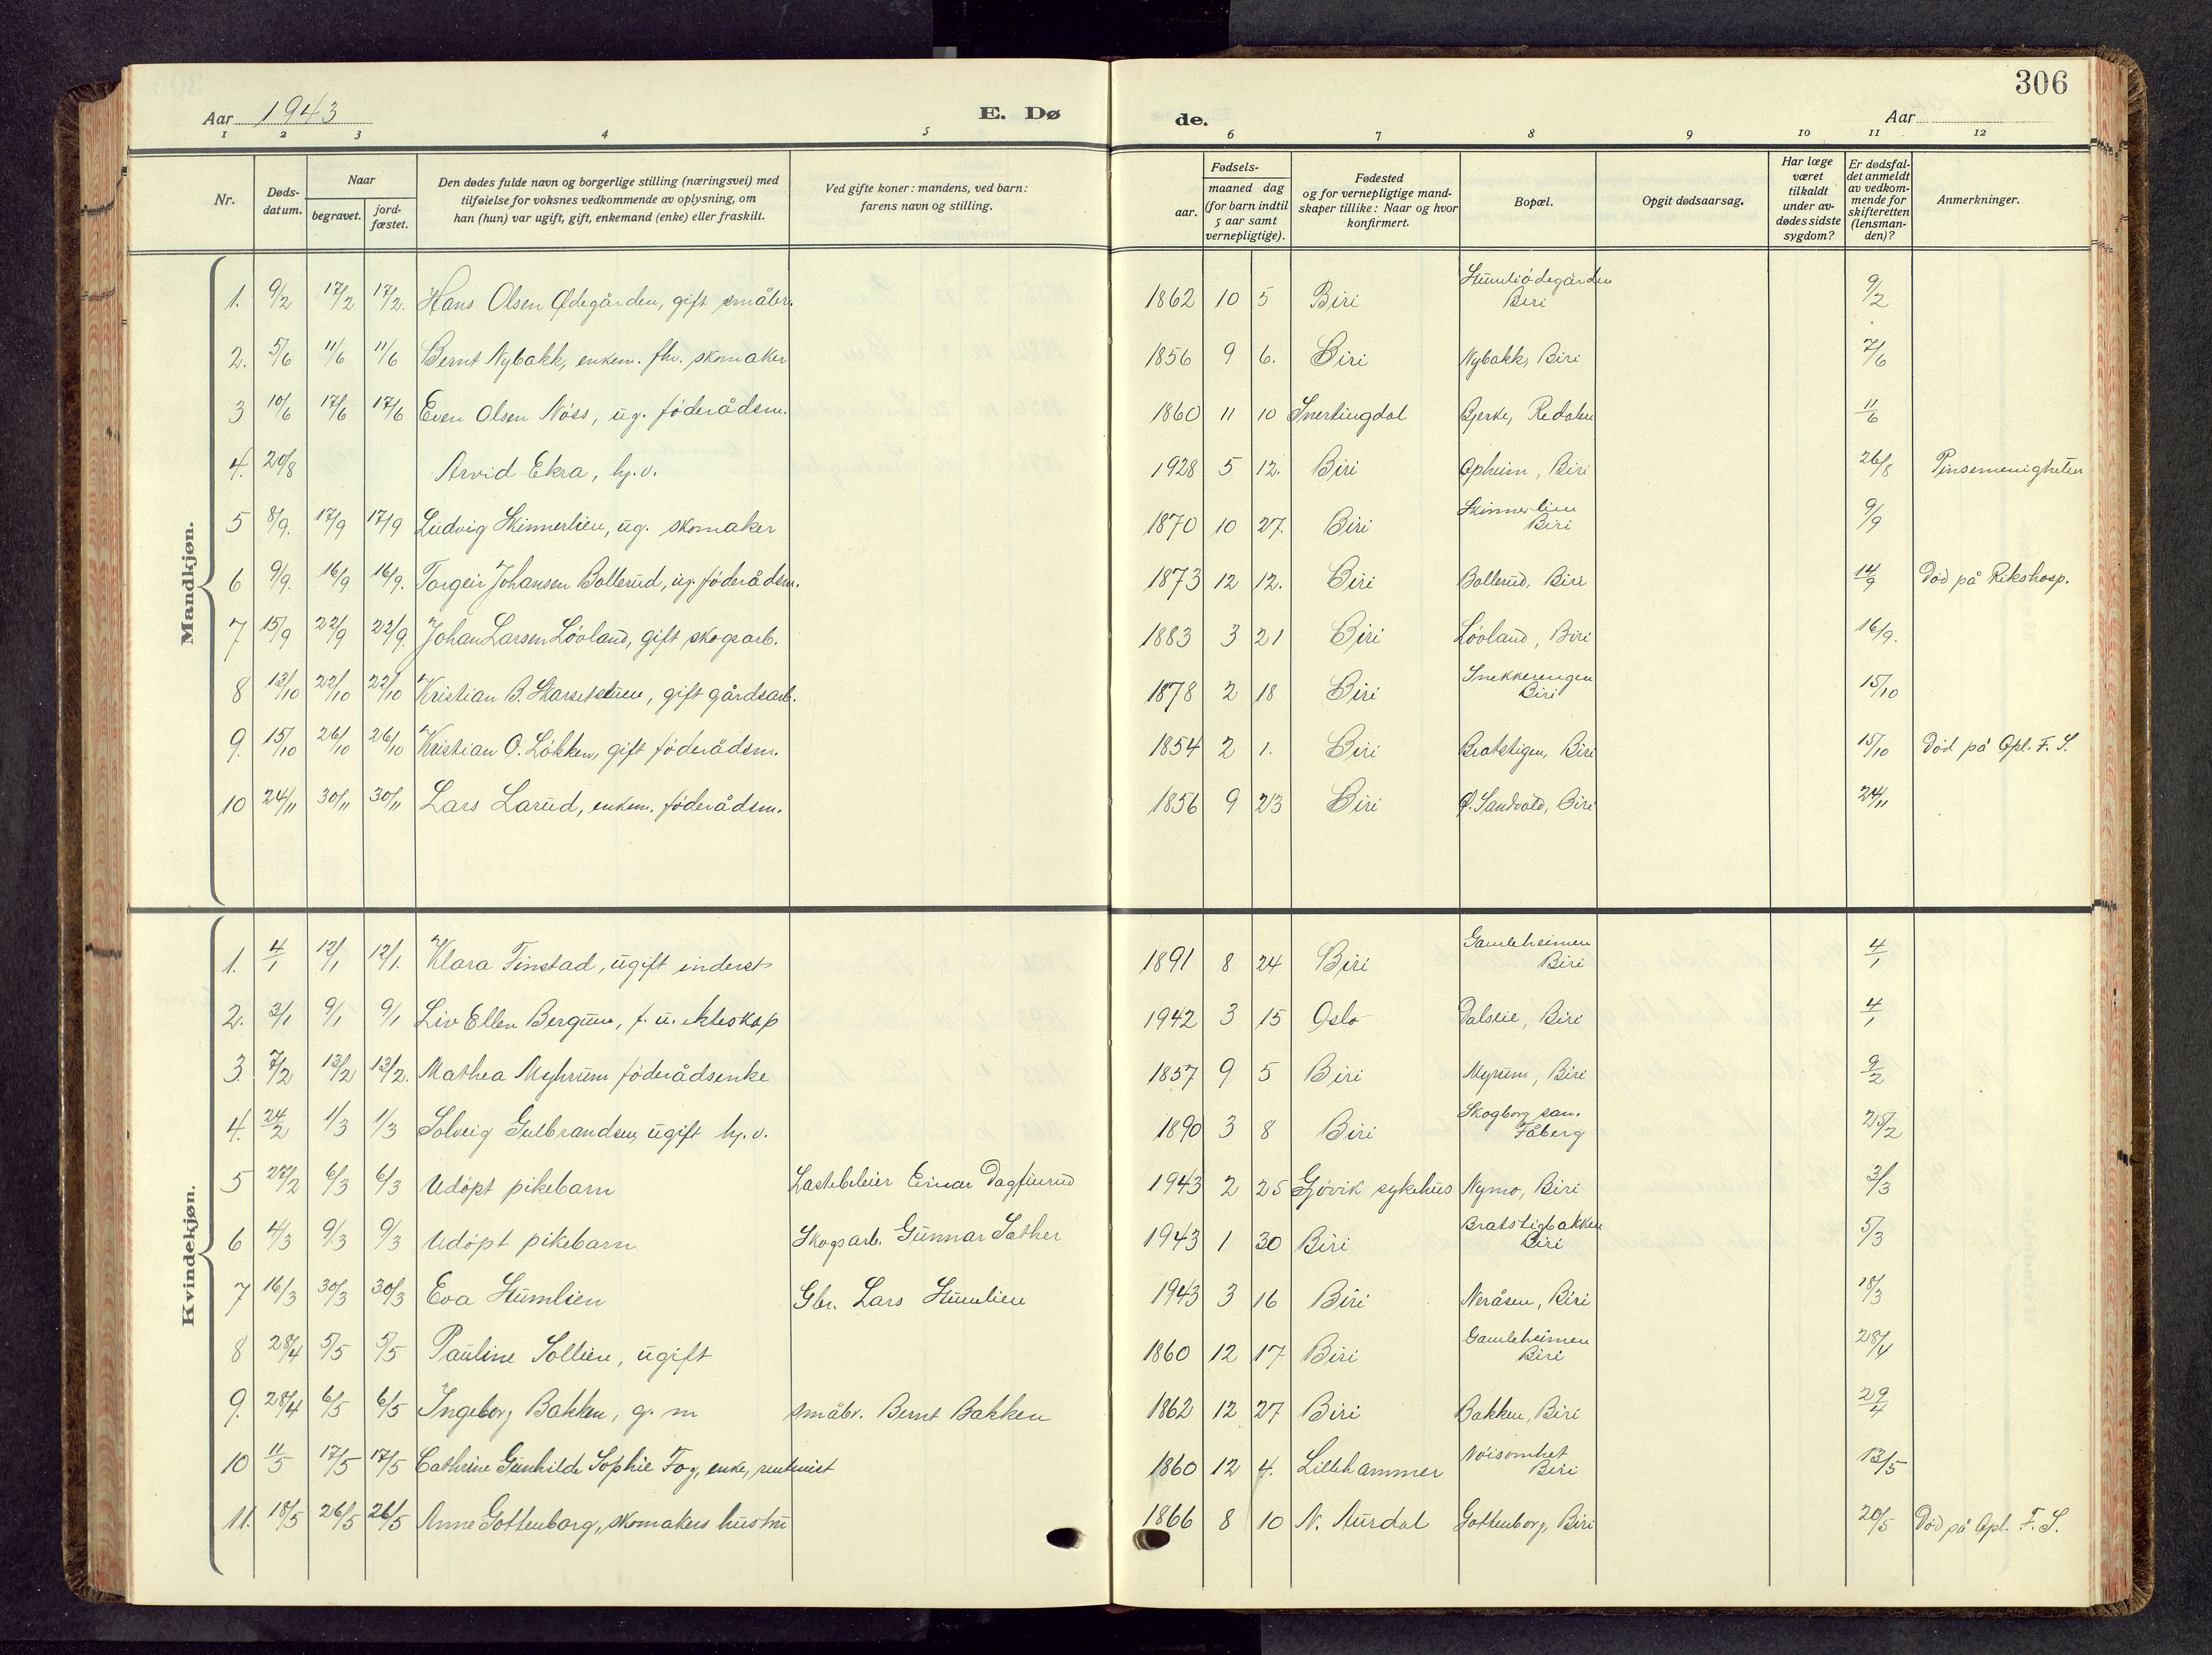 306
Aar 1943
E. Dø
de.
Aar
1 2 3 4 5 6 7 8 9 10 11 12
Nr.
Døds-
datum.
Naar
begravet.
jord-
fæstet.
Den dødes fulde navn og borgerlige stilling (næringsvei) med
tilføielse for voksnes vedkommende av oplysning, om
han (hun) var ugift, gift, enkemand (enke) eller fraskilt.
Ved gifte koner: mandens, ved barn:
farens navn og stilling.
Fødsels-
aar.
maaned dag
(for barn indtil
5 aar samt
vernepligtige).
Fødested
og for vernepligtige mand-
skaper tillike: Naar og hvor
konfirmert.
Bopæl.
Opgit dødsaarsag.
Har læge
været
tilkaldt
under av-
dødes sidste
sygdom?
Er dødsfal-
det anmeldt
av vedkom-
mende for
skifteretten
(lensman-
den)?
Anmerkninger.
Mandkjøn.
1. 9/2 17/2 17/2. Hans Olsen Ødegården, gift småbr. 1862 10 5 Biri Stumliødegården Biri 9/2
2. 5/6 11/6 11/6 Bernt Nybakk, enkem. fhv. skomaker 1856 9 6. Biri Nybakk, Biri 7/6
3 10/6 17/6 17/6 Even Olsen Nöss, ug. föderådsm. 1860 11 10 Snertingdal Bjerke, Redalen 11/6
4. 20/8 Arvid Ekra, hj.v. 1928 5 12. Biri Opheim, Biri 26/8 Pinsemenigheten
5 8/9. 17/9 17/9 Ludvig Skinnerlien, ug. skomaker 1870 10 27. Biri Skinnerlien Biri 9/9
6 9/9. 16/9 16/9. Torgeir Johansen Bollerud, ug. föderådsm. 1873 12 12. Biri Bollerud, Biri 14/9 Död på Rikshosp.
7 15/9 22/9 22/9. Johan Larsen Lövland, gift skogsarb. 1883 3 21 Biri Lövland, Biri 16/9.
8 13/10 22/10 22/10 Kristian B. Skarsetstuen, gift gårdsarb. 1878 2 18 Biri Snekkerengen Biri 15/10
9. 15/10 26/10 26/10 Kristian O. Lökken, gift föderådsm. 1854 2 1. Biri Bratstigen, Biri 15/10 Död på Opl. F. S.
10 24/11 30/11 30/11 Lars Larud, enkem. föderådsm. 1856 9 23 Biri Ø. Sandvold, Biri 24/11
Kvindekjøn.
1. 4/1 12/1 12/1. Klara Finstad, ugift inderst 1891 8 24 Biri Gamleheimen Biri 4/1
2. 3/1 9/1 9/1 Liv Ellen Bergum, f. u. ekteskap 1942 3 15 Oslo Dalseie, Biri 4/1
3. 7/2 13/2 13/2. Mathea Myhrum föderådsenke 1857 9 5 Biri Myrum, Biri 9/2
4. 24/2 1/3 1/3 Solveig Gulbrandsen, ugift hj.v. 1890 3 8 Biri Skogborg san. Fåberg 25/2
5 27/2 6/3 6/3 Udöpt pikebarn Lastebileier Einar Dagfinrud 1943 2 25 Gjövik sykehus Nymo, Biri 3/3
6 4/3 9/3 9/3 Udöpt pikebarn Skogsarb. Gunnar Sæther 1943 1 30 Biri Bratstigbakken Biri 5/3
7 16/3 30/3 30/3 Eva Stumlien Gbr. Lars Stumlien 1943 3 16 Biri Neråsen, Biri 18/3
8 28/4 5/5 5/5 Pauline Sollien, ugift 1860 12 17 Biri Gamleheimen Biri 28/4
9. 28/4 6/5 6/5 Ingeborg Bakken, g. m småbr. Bernt Bakken 1862 12 27 Biri Bakken, Biri 29/4
10 11/5 17/5 17/5 Cathrine Gunhilde Sophie Fog, enke, rentenist 1860 12 4. Lillehammer Nöisomhet Biri 13/5
11. 18/5 26/5 26/5 Anne Gottenborg, skomakers hustru 1866 8 10 N. Aurdal Gottenborg, Biri 20/5 Död på Opl. F. S.